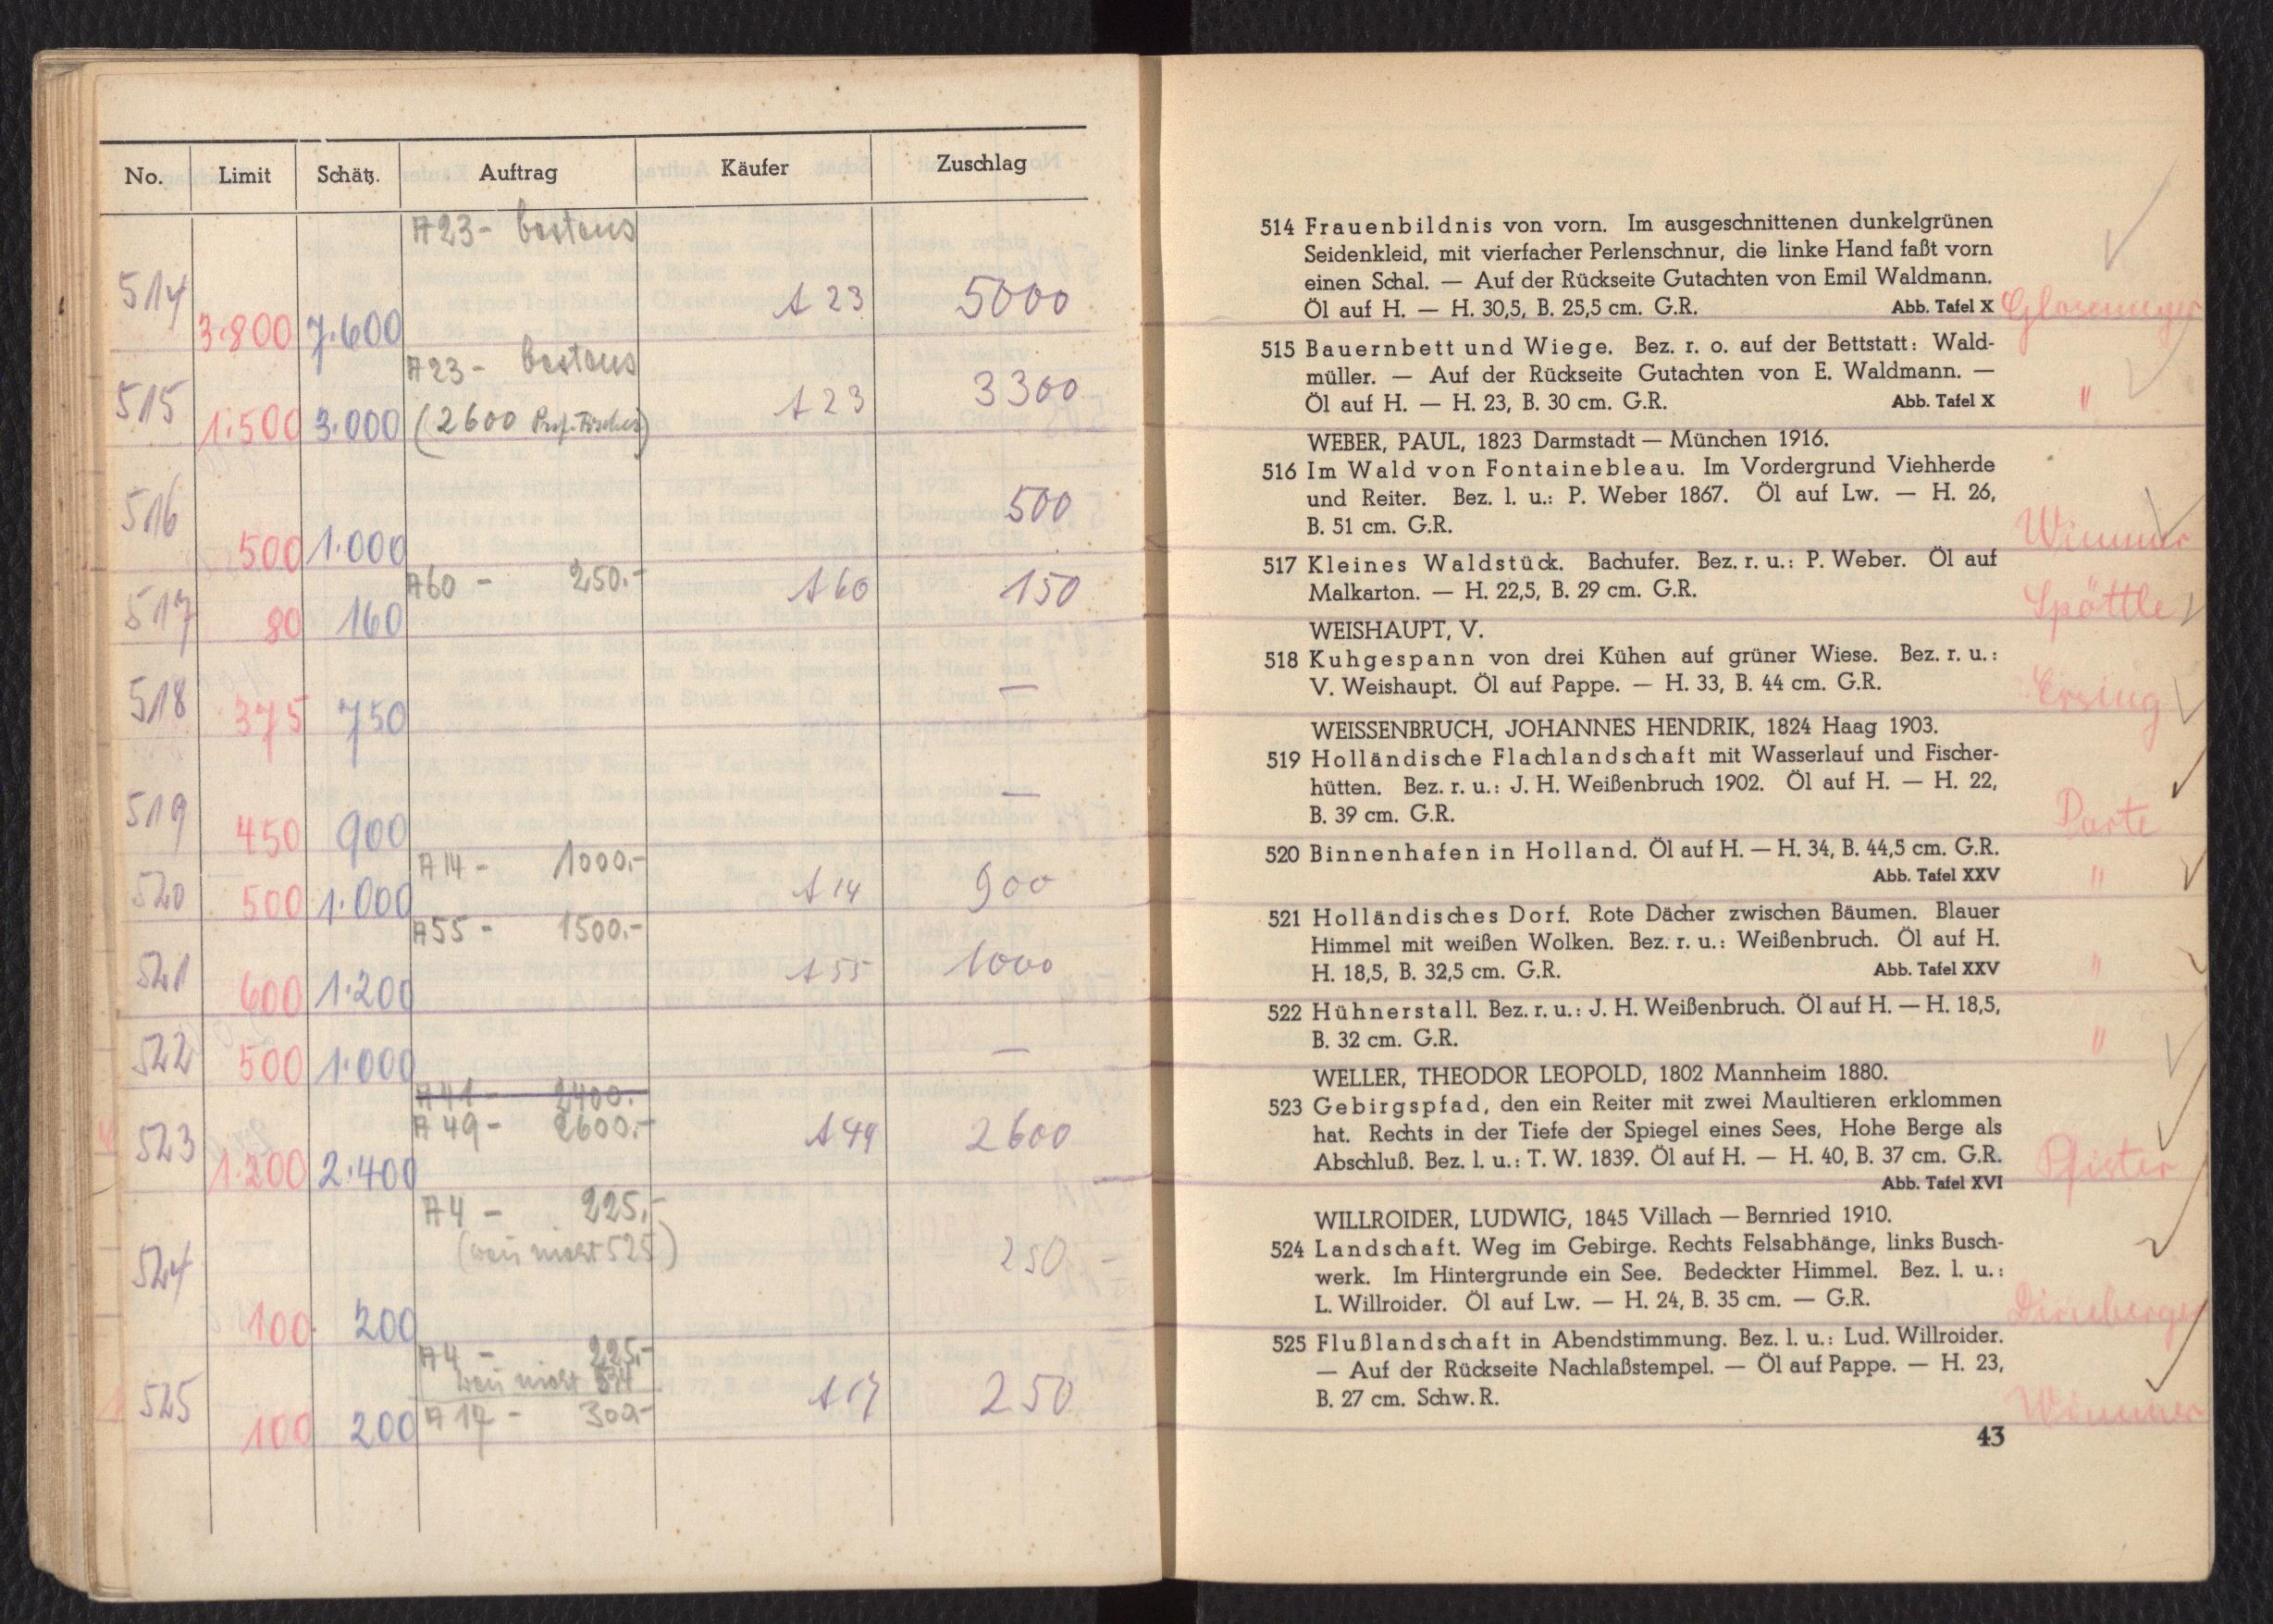 No. Limit Schätz. Auftrag Käufer Zuschlag
A23 - bestens
514 3.800 7.600 A 23 5000
A23 - bestens
515 1.500 3.000 (2600 Prof. Fischer) A 23 3300
516 500 1.000 500
A60 - 250.-
517 80 160 A 60 150
518 375 750 —
519 450 900 —
A14 - 1000.-
520 500 1.000 A 14 900
A55 - 1500.-
521 600 1.200 A 55 1000
522 500 1.000 —
A41 - 2400.-
A49 - 2600.-
523 1.200 2.400 A 49 2600
A4 - 225.-
(wenn nicht 525)
524 100 200 250 -
A4 - 225.-
wenn nicht 524
525 100 200 A 17 - 300.- A 17 250
514 Frauenbildnis von vorn. Im ausgeschnittenen dunkelgrünen
Seidenkleid, mit vierfacher Perlenschnur, die linke Hand faßt vorn
einen Schal. — Auf der Rückseite Gutachten von Emil Waldmann.
Öl auf H. — H. 30,5, B. 25,5 cm. G.R. Abb. Tafel X
515 Bauernbett und Wiege. Bez. r. o. auf der Bettstatt: Wald-
müller. — Auf der Rückseite Gutachten von E. Waldmann. —
Öl auf H. — H. 23, B. 30 cm. G.R. Abb. Tafel X "
WEBER, PAUL, 1823 Darmstadt — München 1916.
516 Im Wald von Fontainebleau. Im Vordergrund Viehherde
und Reiter. Bez. l. u.: P. Weber 1867. Öl auf Lw. — H. 26,
B. 51 cm. G.R. Wimmer
517 Kleines Waldstück. Bachufer. Bez. r. u.: P. Weber. Öl auf
Malkarton. — H. 22,5, B. 29 cm. G.R. Spöttle
WEISHAUPT, V.
518 Kuhgespann von drei Kühen auf grüner Wiese. Bez. r. u.:
V. Weishaupt. Öl auf Pappe. — H. 33, B. 44 cm. G.R. Ersing
WEISSENBRUCH, JOHANNES HENDRIK, 1824 Haag 1903.
519 Holländische Flachlandschaft mit Wasserlauf und Fischer-
hütten. Bez. r. u.: J. H. Weißenbruch 1902. Öl auf H. — H. 22,
B. 39 cm. G.R. Parte
520 Binnenhafen in Holland. Öl auf H. — H. 34, B. 44,5 cm. G.R.
Abb. Tafel XXV "
521 Holländisches Dorf. Rote Dächer zwischen Bäumen. Blauer
Himmel mit weißen Wolken. Bez. r. u.: Weißenbruch. Öl auf H.
H. 18,5, B. 32,5 cm. G.R. Abb. Tafel XXV "
522 Hühnerstall. Bez. r. u.: J. H. Weißenbruch. Öl auf H. — H. 18,5,
B. 32 cm. G.R. "
WELLER, THEODOR LEOPOLD, 1802 Mannheim 1880.
523 Gebirgspfad, den ein Reiter mit zwei Maultieren erklommen
hat. Rechts in der Tiefe der Spiegel eines Sees, Hohe Berge als
Abschluß. Bez. l. u.: T. W. 1839. Öl auf H. — H. 40, B. 37 cm. G.R. Pfister
Abb. Tafel XVI
WILLROIDER, LUDWIG, 1845 Villach — Bernried 1910.
524 Landschaft. Weg im Gebirge. Rechts Felsabhänge, links Busch-
werk. Im Hintergrunde ein See. Bedeckter Himmel. Bez. l. u.:
L. Willroider. Öl auf Lw. — H. 24, B. 35 cm. — G.R. Dirneberger
525 Flußlandschaft in Abendstimmung. Bez. l. u.: Lud. Willroider.
— Auf der Rückseite Nachlaßstempel. — Öl auf Pappe. — H. 23,
B. 27 cm. Schw. R. Wimmer
43